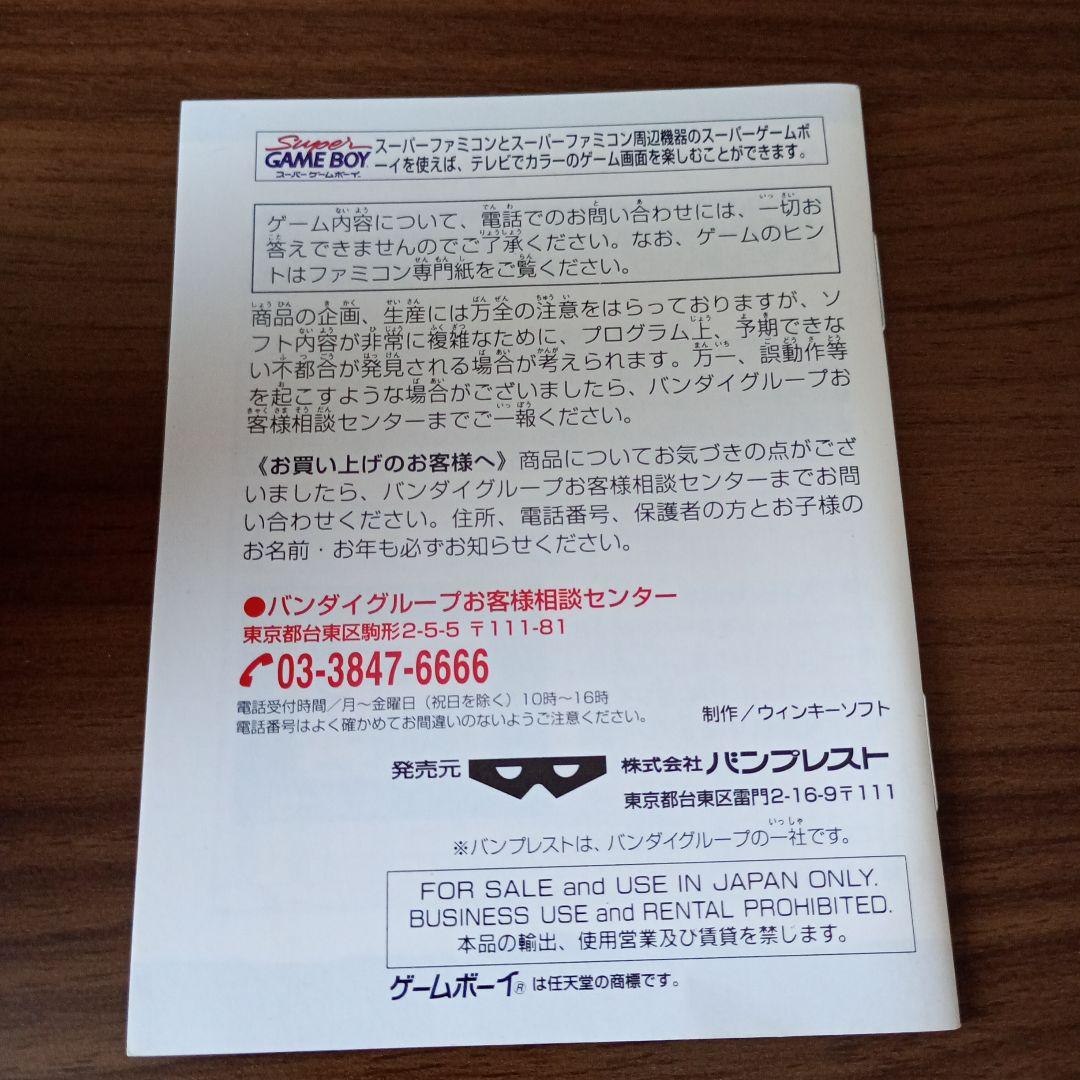 Super
GAME BOY
スーパーゲームボーイ
スーパーファミコンとスーパーファミコン周辺機器のスーパーゲームボ
ーイを使えば、テレビでカラーのゲーム画面を楽しむことができます。
ゲーム内容について、電話でのお問い合わせには、一切お
答えできませんのでご了承ください。なお、ゲームのヒン
トはファミコン専門紙をご覧ください。
商品の企画、生産には万全の注意をはらっておりますが、ソ
フト内容が非常に複雑なために、プログラム上、予期できな
い不都合が発見される場合が考えられます。万一、誤動作等
を起こすような場合がございましたら、バンダイグループお
客様相談センターまでご一報ください。
《お買い上げのお客様へ》商品についてお気づきの点がござ
いましたら、バンダイグループお客様相談センターまでお問
い合わせください。住所、電話番号、保護者の方とお子様の
お名前・お年も必ずお知らせください。
●バンダイグループお客様相談センター
東京都台東区駒形2-5-5 〒111-81
03-3847-6666
電話受付時間/月〜金曜日(祝日を除く)10時〜16時
電話番号はよく確かめてお間違いのないようご注意ください。
制作/ウィンキーソフト
発売元 株式会社バンプレスト
東京都台東区雷門2-16-9〒111
※バンプレストは、バンダイグループの一社です。
FOR SALE and USE IN JAPAN ONLY.
BUSINESS USE and RENTAL PROHIBITED.
本品の輸出、使用営業及び賃貸を禁じます。
ゲームボーイ®は任天堂の商標です。